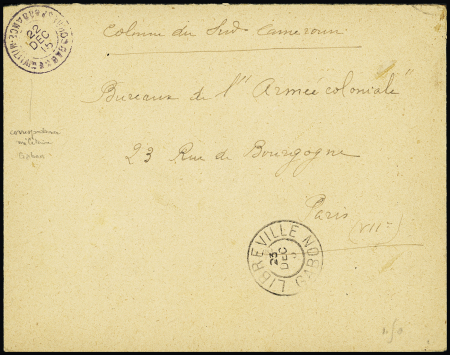 Colonne du Sud Cameroun
Bureaux de l'"Armée coloniale"
23 Rue de Bourgogne
Paris
(VIIe)
correspondance
militaire
LIBREVILLE GABON
23
DEC
DEC